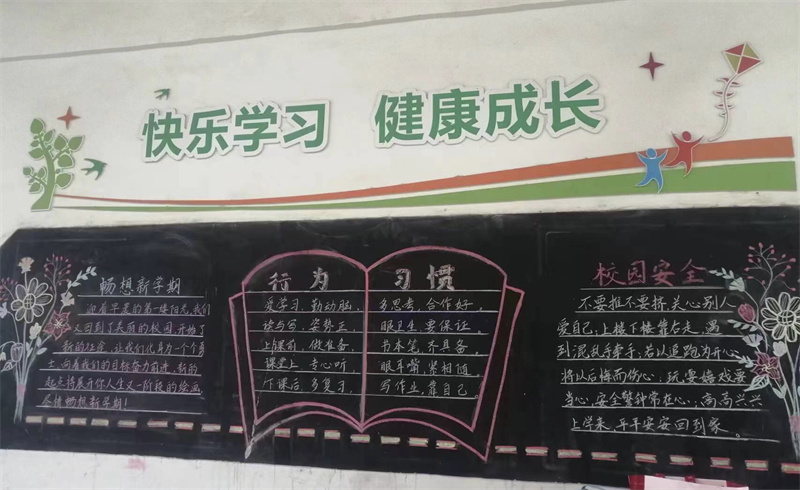 快乐学习 健康成长
畅想新学期
迎着早晨的第一缕阳光,我们
又回到了美丽的校园,开始了
新的征途,让我们化身为一个个勇
士,向着我们的目标奋力前进,新的
起点将展开你人生又一阶段的绘画
尽情畅想新学期!
行为习惯
爱学习、勤动脑,多思考,合作好。
读与写,姿势正,眼卫生,要保证。
上课前,做准备,书本笔,齐具备。
课堂上,专心听,眼耳嘴,紧相随。
下课后,多复习,写作业,靠自己。
校园安全
不要推不要挤,关心别人
爱自己,上楼下楼靠右走,遇
到混乱手牵手;若以追跑为开心
将以后悔而伤心;玩耍嬉戏要
当心,安全警钟常在心;高高兴兴
上学来,平平安安回到家。